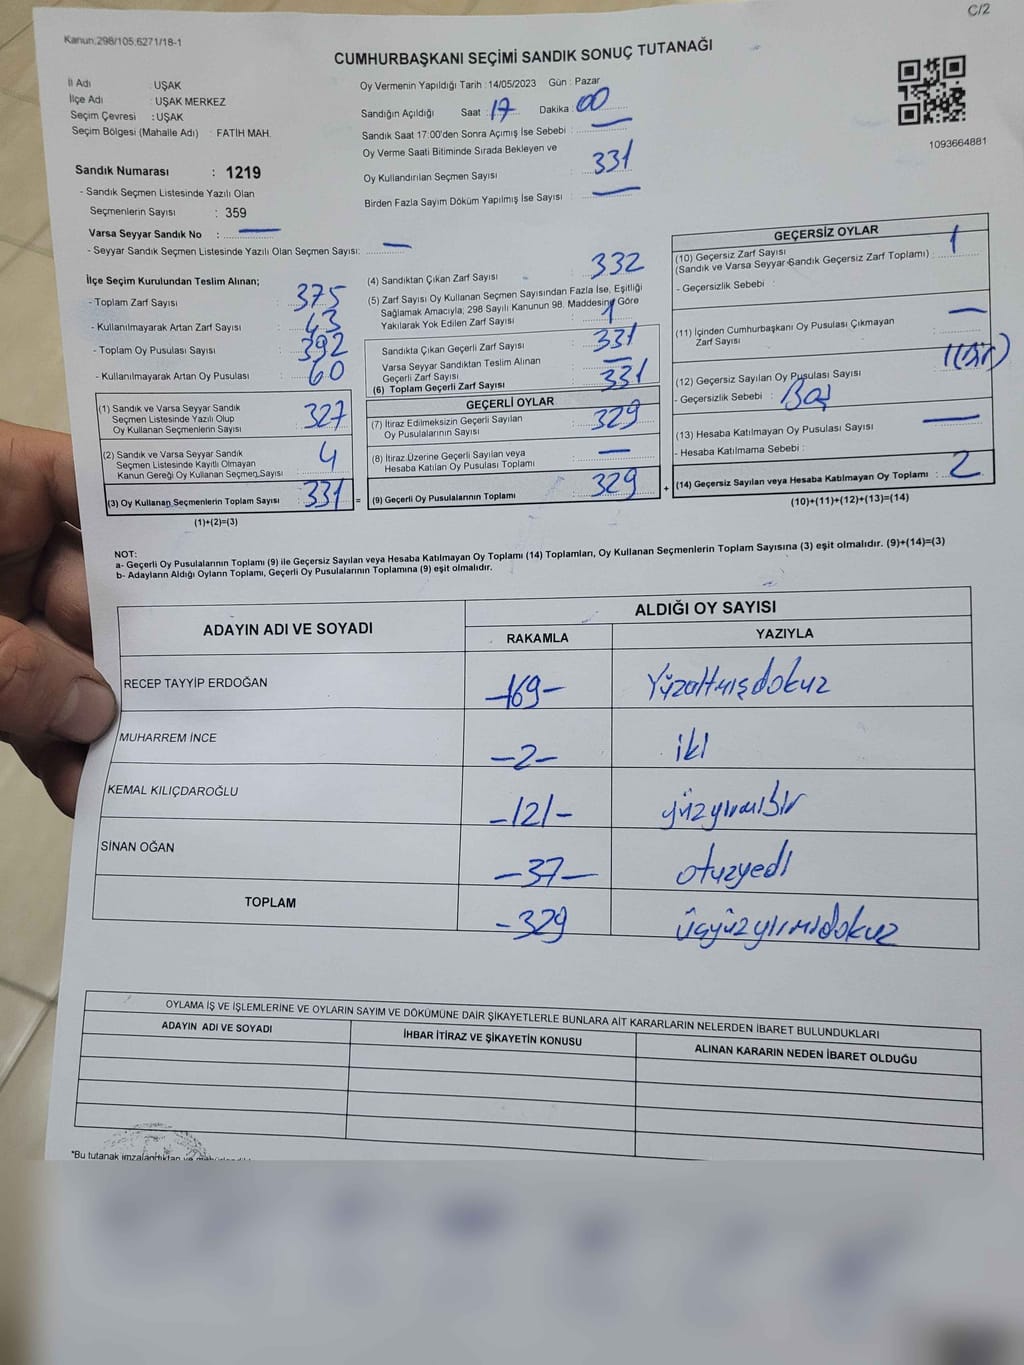 C/2
Kanun:298/105;6271/18-1
CUMHURBAŞKANI SEÇİMİ SANDIK SONUÇ TUTANAĞI
İl Adı : UŞAK
İlçe Adı : UŞAK MERKEZ
Seçim Çevresi : UŞAK
Seçim Bölgesi (Mahalle Adı) : FATİH MAH.
Sandık Numarası : 1219
- Sandık Seçmen Listesinde Yazılı Olan
Seçmenlerin Sayısı : 359
Varsa Seyyar Sandık No : —
- Seyyar Sandık Seçmen Listesinde Yazılı Olan Seçmen Sayısı: —
Oy Vermenin Yapıldığı Tarih : 14/05/2023 Gün : Pazar
Sandığın Açıldığı Saat : 17 Dakika : 00
Sandık Saat 17:00'den Sonra Açımış İse Sebebi : —
Oy Verme Saati Bitiminde Sırada Bekleyen ve
Oy Kullandırılan Seçmen Sayısı : 331
Birden Fazla Sayım Döküm Yapılmış İse Sayısı : —
1093664881
İlçe Seçim Kurulundan Teslim Alınan;
- Toplam Zarf Sayısı : 375
- Kullanılmayarak Artan Zarf Sayısı : 43
- Toplam Oy Pusulası Sayısı : 392
- Kullanılmayarak Artan Oy Pusulası : 60
(1) Sandık ve Varsa Seyyar Sandık
Seçmen Listesinde Yazılı Olup
Oy Kullanan Seçmenlerin Sayısı : 327
(2) Sandık ve Varsa Seyyar Sandık
Seçmen Listesinde Kayıtlı Olmayan
Kanun Gereği Oy Kullanan Seçmen Sayısı : 4
(3) Oy Kullanan Seçmenlerin Toplam Sayısı : 331
(1)+(2)=(3)
(4) Sandıktan Çıkan Zarf Sayısı : 332
(5) Zarf Sayısı Oy Kullanan Seçmen Sayısından Fazla İse, Eşitliği
Sağlamak Amacıyla; 298 Sayılı Kanunun 98. Maddesine Göre
Yakılarak Yok Edilen Zarf Sayısı : 1
Sandıkta Çıkan Geçerli Zarf Sayısı : 331
Varsa Seyyar Sandıktan Teslim Alınan
Geçerli Zarf Sayısı : —
(6) Toplam Geçerli Zarf Sayısı : 331
GEÇERLİ OYLAR
(7) İtiraz Edilmeksizin Geçerli Sayılan
Oy Pusulalarının Sayısı : 329
(8) İtiraz Üzerine Geçerli Sayılan veya
Hesaba Katılan Oy Pusulası Toplamı : —
= (9) Geçerli Oy Pusulalarının Toplamı : 329
GEÇERSİZ OYLAR
(10) Geçersiz Zarf Sayısı
(Sandık ve Varsa Seyyar Sandık Geçersiz Zarf Toplamı) : 1
- Geçersizlik Sebebi :
(11) İçinden Cumhurbaşkanı Oy Pusulası Çıkmayan
Zarf Sayısı : —
(12) Geçersiz Sayılan Oy Pusulası Sayısı : 1(Bir)
- Geçersizlik Sebebi : Boş
(13) Hesaba Katılmayan Oy Pusulası Sayısı : —
- Hesaba Katılmama Sebebi :
+ (14) Geçersiz Sayılan veya Hesaba Katılmayan Oy Toplamı : 2
(10)+(11)+(12)+(13)=(14)
NOT:
a- Geçerli Oy Pusulalarının Toplamı (9) ile Geçersiz Sayılan veya Hesaba Katılmayan Oy Toplamı (14) Toplamları, Oy Kullanan Seçmenlerin Toplam Sayısına (3) eşit olmalıdır. (9)+(14)=(3)
b- Adayların Aldığı Oyların Toplamı, Geçerli Oy Pusulalarının Toplamına (9) eşit olmalıdır.
ADAYIN ADI VE SOYADI
ALDIĞI OY SAYISI
RAKAMLA YAZIYLA
RECEP TAYYİP ERDOĞAN -169- Yüzaltmışdokuz
MUHARREM İNCE -2- iki
KEMAL KILIÇDAROĞLU -121- yüzyirmibir
SİNAN OĞAN -37- otuzyedi
TOPLAM -329 üçyüzyirmidokuz
OYLAMA İŞ VE İŞLEMLERİNE VE OYLARIN SAYIM VE DÖKÜMÜNE DAİR ŞİKAYETLERLE BUNLARA AİT KARARLARIN NELERDEN İBARET BULUNDUKLARI
ADAYIN ADI VE SOYADI İHBAR İTİRAZ VE ŞİKAYETİN KONUSU ALINAN KARARIN NEDEN İBARET OLDUĞU
*Bu tutanak imzalandıktan ve